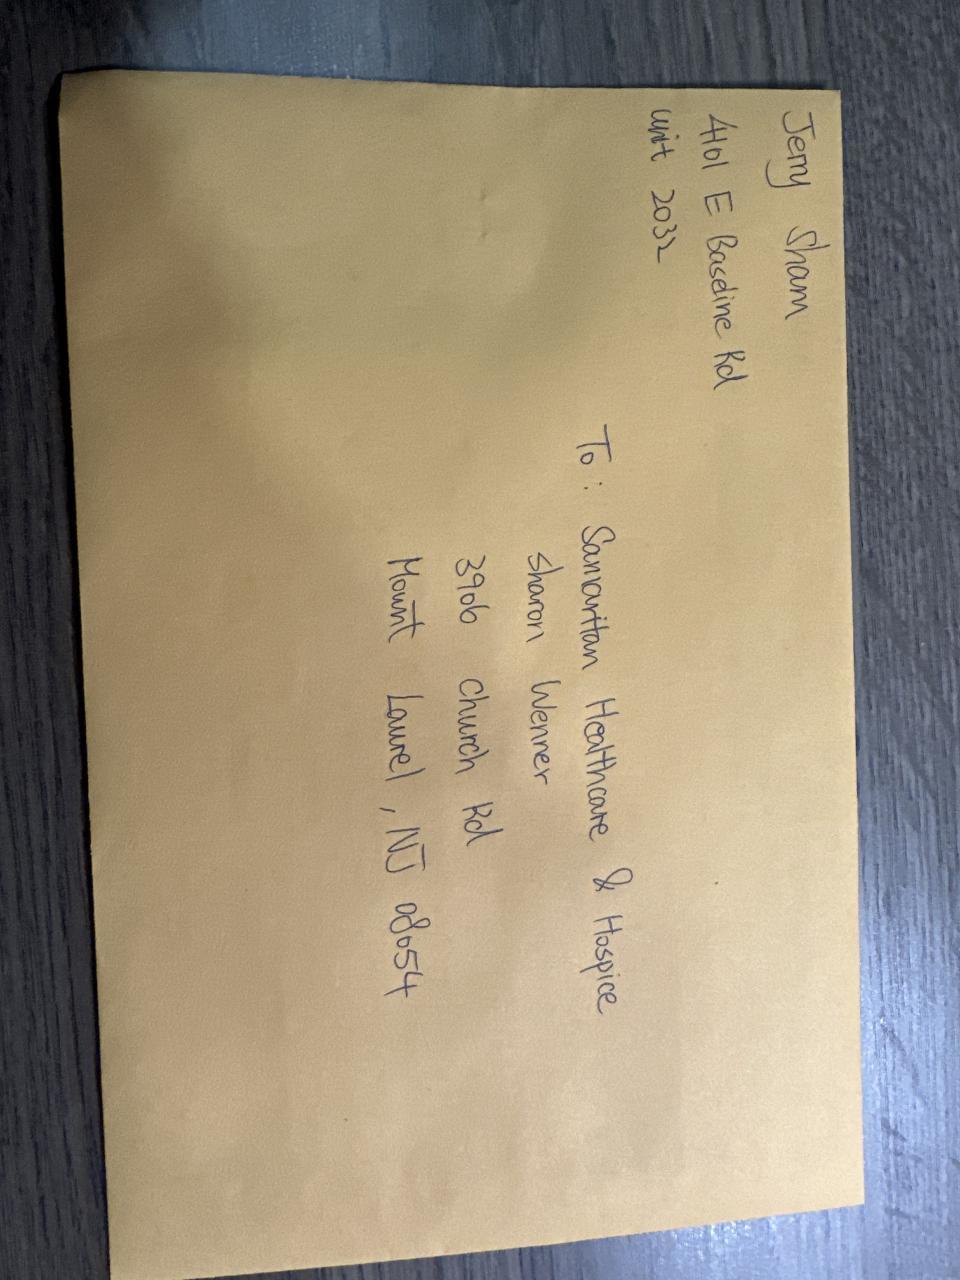 Jerry Sham
4101 E Baseline Rd
unit 2032
To: Samaritan Healthcare & Hospice
Sharon Wenner
3906 Church Rd
Mount Laurel, NJ 08054